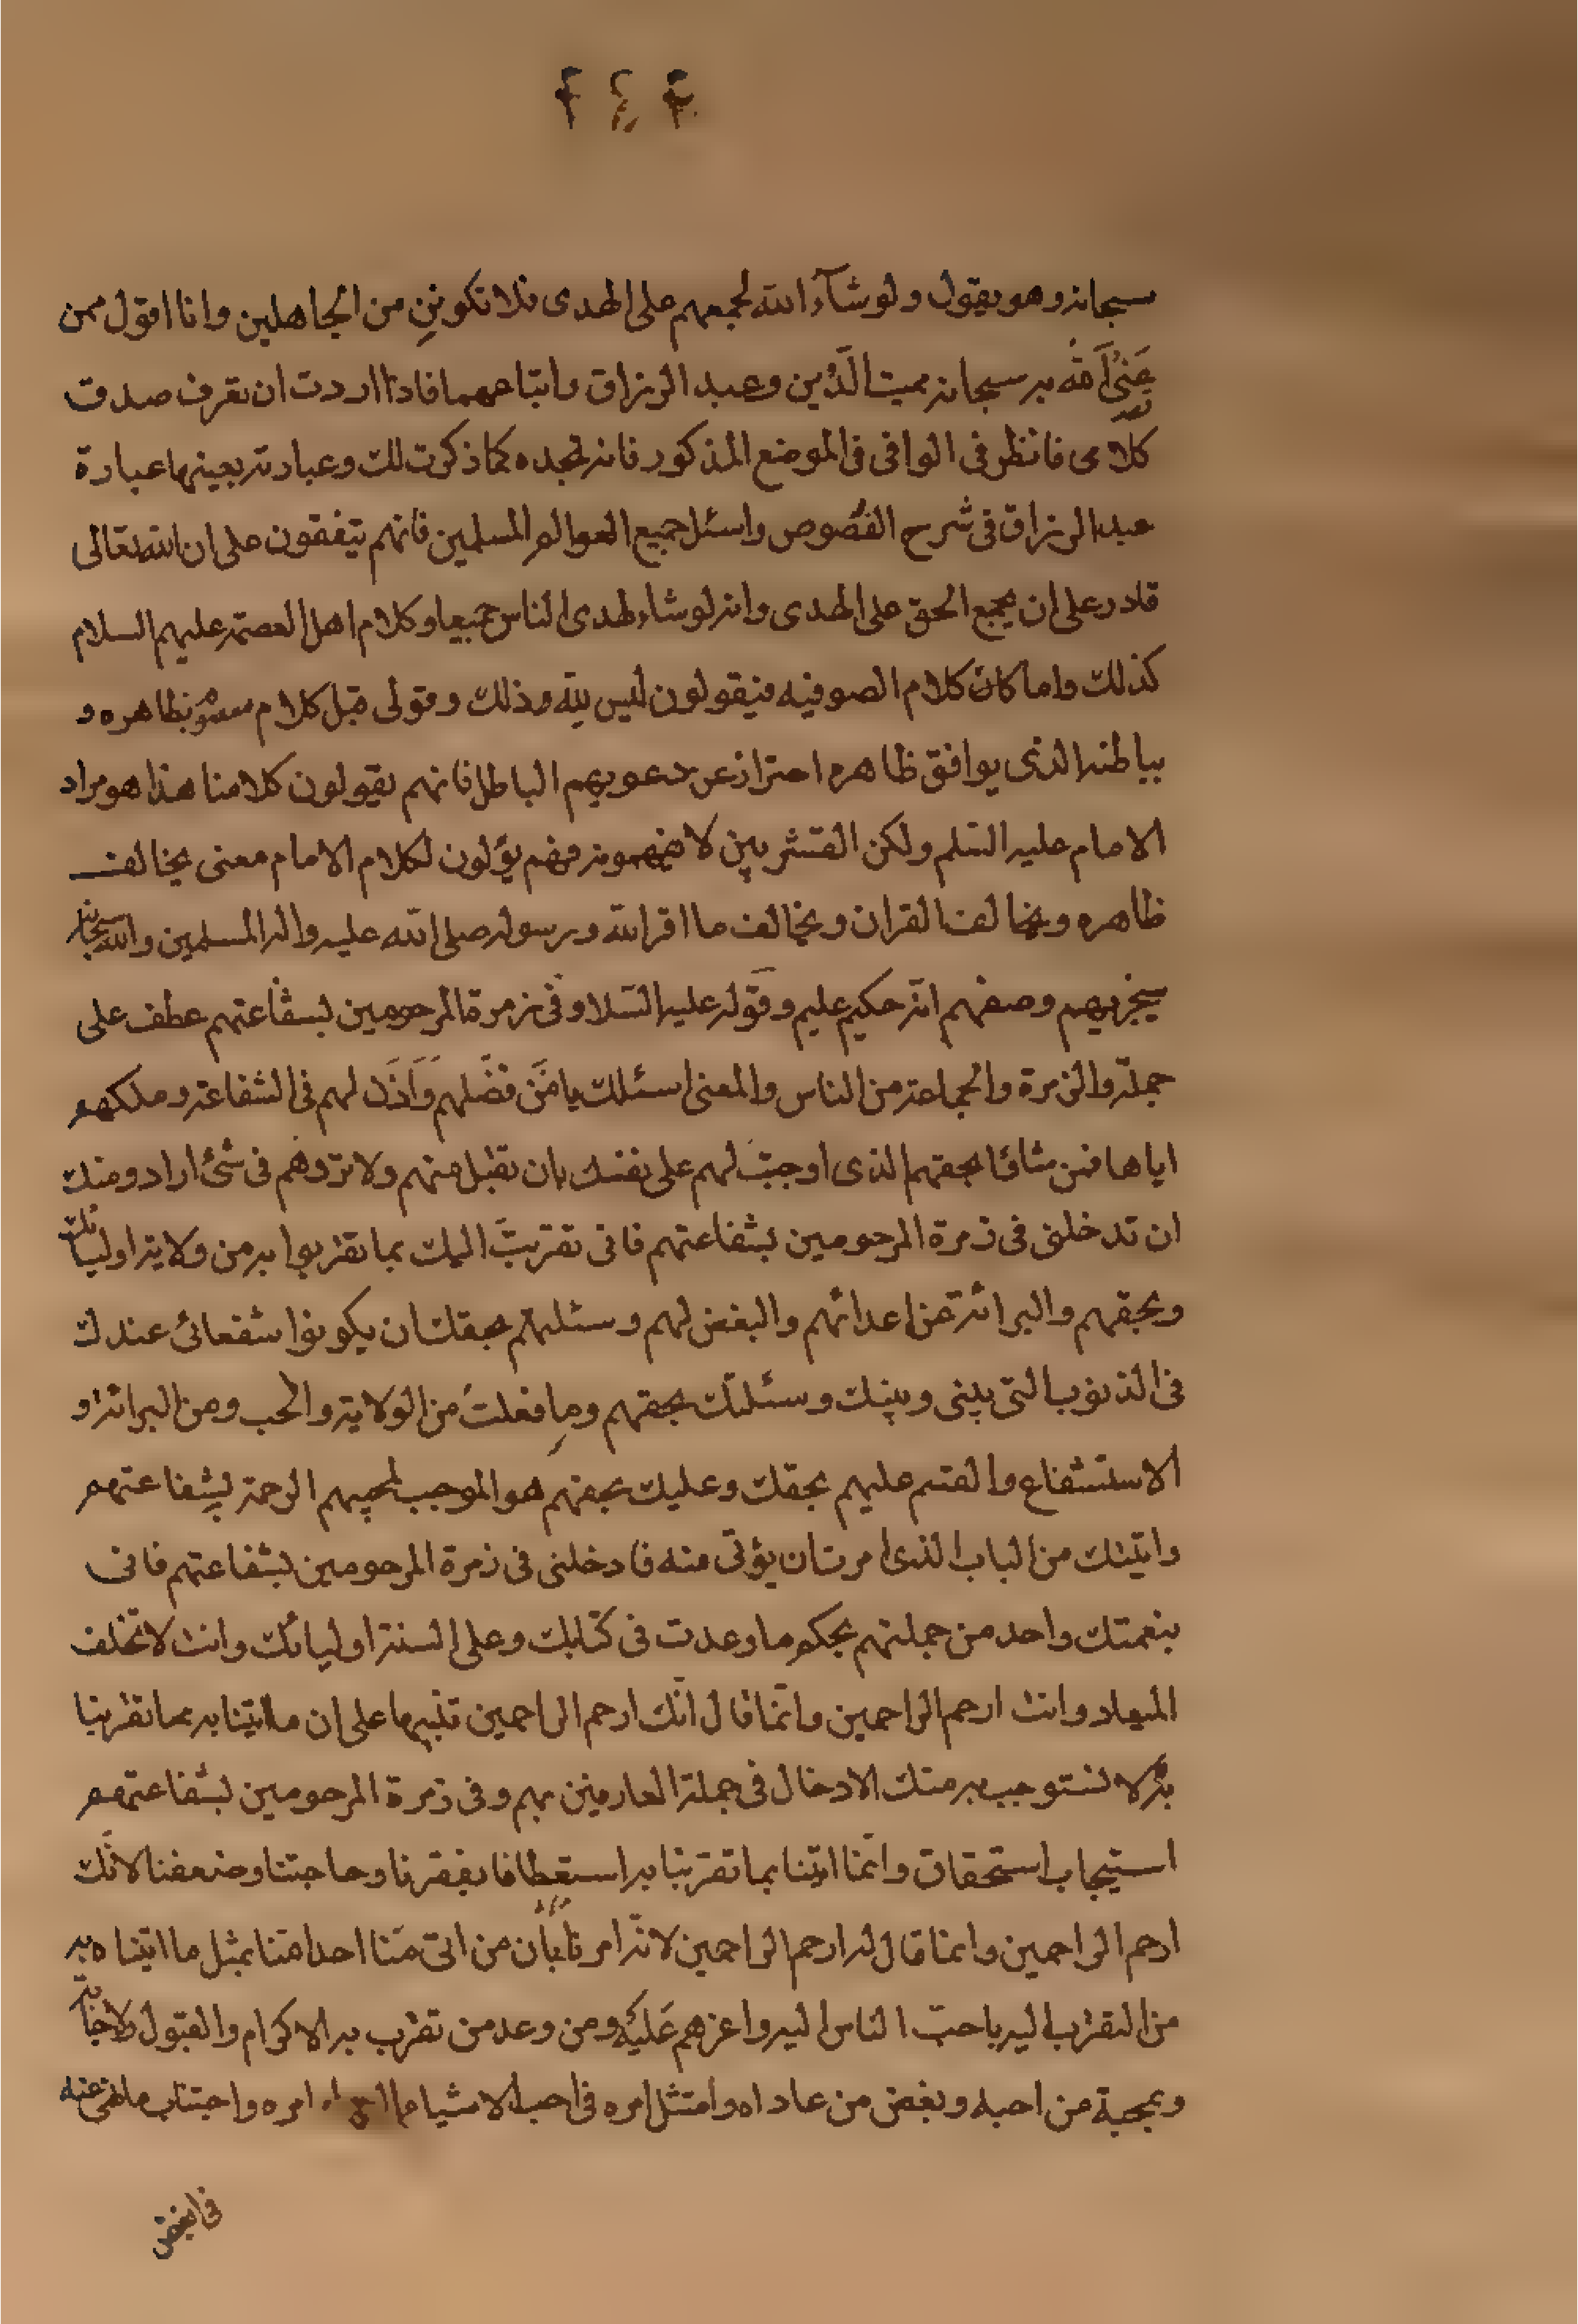 سبحانه وهو يقول ولو شآء الله لجمعهم على الهدى فلا تكونن من الجاهلين وانا اقول ممن
عنى الله به سبحانه مميت الدين وعبد الرزاق واتباعهما فاذا اردت ان تعرف صدق
كلامى فانظر فى الوافى فى الموضع المذكور فانه تجده كما ذكرت لك وعبارته بعينها عبارة
عبد الرزاق فى شرح الفصوص واسئل جميع العوالم المسلمين فانهم يتفقون على ان الله تعالى
قادر على ان يجمع الخلق على الهدى وانه لو شاء لهدى الناس جميعا وكلام اهل العصمة عليهم السلام
كذلك واما كان كلام الصوفيه فيقولون ليس لله وذلك وقولى قبل كلام بظاهره و
بباطنه الذى يوافق ظاهره احتراز عن دعويهم الباطل فانهم يقولون كلامنا هذا هو مراد
الامام عليه السلم ولكن القشريين لا يفهمونه فهم يؤلون لكلام الامام معنى يخالف
ظاهره ويخالف القران ويخالف ما اقر الله ورسوله صلى الله عليه واله المسلمين والله سبحانه
سيجزيهم وصفهم انه حكيم عليم وقوله عليه السلام وفى زمرة المرحومين بشفاعتهم عطف على
جملة والزمرة والجماعة من الناس والمعنى اسئلك يا من فضلهم واذن لهم فى الشفاعة وملكهم
اياها فمن شافا بحقهم الذى اوجبت لهم على نفسك بان تقبل منهم ولا تردهم فى شئ ارادو منك
ان تدخلنى فى زمرة المرحومين بشفاعتهم فانى تقربت اليك بما تقربوا به من ولاية اوليائك
وبحقهم والبرائة من اعدائهم والبغض لهم وسئلتهم بحقك ان يكونوا شفعائى عندك
فى الذنوب التى بينى وبينك وسئلتك بحقهم وما فعلت من الولاية والحب ومن البرائة و
الاستشفاع والقسم عليهم بحقك وعليك بحقهم هو الموجب لمحبهم الرحمة بشفاعتهم
واتيتك من الباب الذى امرت ان يؤتى منه فادخلنى فى زمرة المرحومين بشفاعتهم فانى
بنعمتك واحد من جملتهم بحكم ما وعدت فى كتابك وعلى السنة اوليائك وانت لا تخلف
الميعاد وانت ارحم الراحمين وانما قال انك ارحم الراحمين تنبيها على ان ما اتينا به مما تقربنا
به لا نستوجب به منك الادخال فى جملة العارفين بهم وفى زمرة المرحومين بشفاعتهم
استيجاب استحقاق وانما اتينا بما تقربنا به استعطافا بفقرنا وحاجتنا وضعفنا لانك
ارحم الراحمين وانما قال له ارحم الراحمين لانه امرنا بان من اتى منا احدا منا بمثل ما اتيناه به
من التقرب اليه باحب الناس اليه واعزهم عليه ومن وعد من تقرب به الاكرام والقبول
وبمحبة من احبه وبغض من عاداه وامتثل امره فى احب الاشياء امره واجتناب ما نهى عنه
فى ابغض